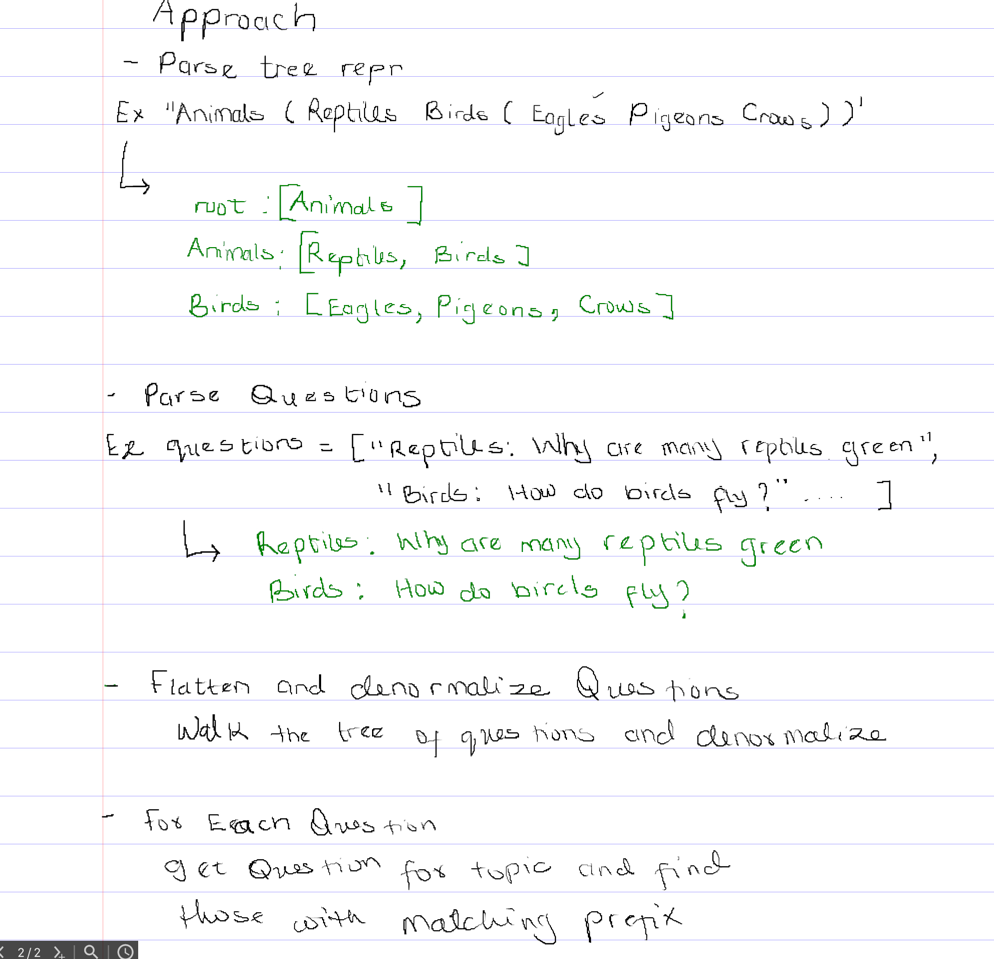 Approach
- Parse tree repr
Ex "Animals ( Reptiles Birds ( Eagles Pigeons Crows ) )'
root : [Animals]
Animals: [Reptiles, Birds]
Birds : [Eagles, Pigeons, Crows]
- Parse Questions
Ex questions = ["Reptiles: Why are many reptiles green",
"Birds: How do birds fly?" .... ]
Reptiles: Why are many reptiles green
Birds : How do birds fly?
- Flatten and denormalize Questions
Walk the tree of questions and denormalize
- For Each Question
get Question for topic and find
those with matching prefix
2/2